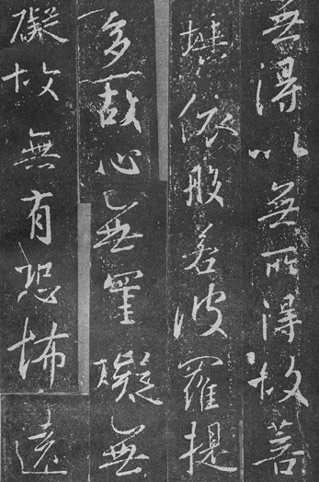 無得以無所得故菩
埵依般若波羅提
多故心無罣礙無
礙故無有恐怖遠